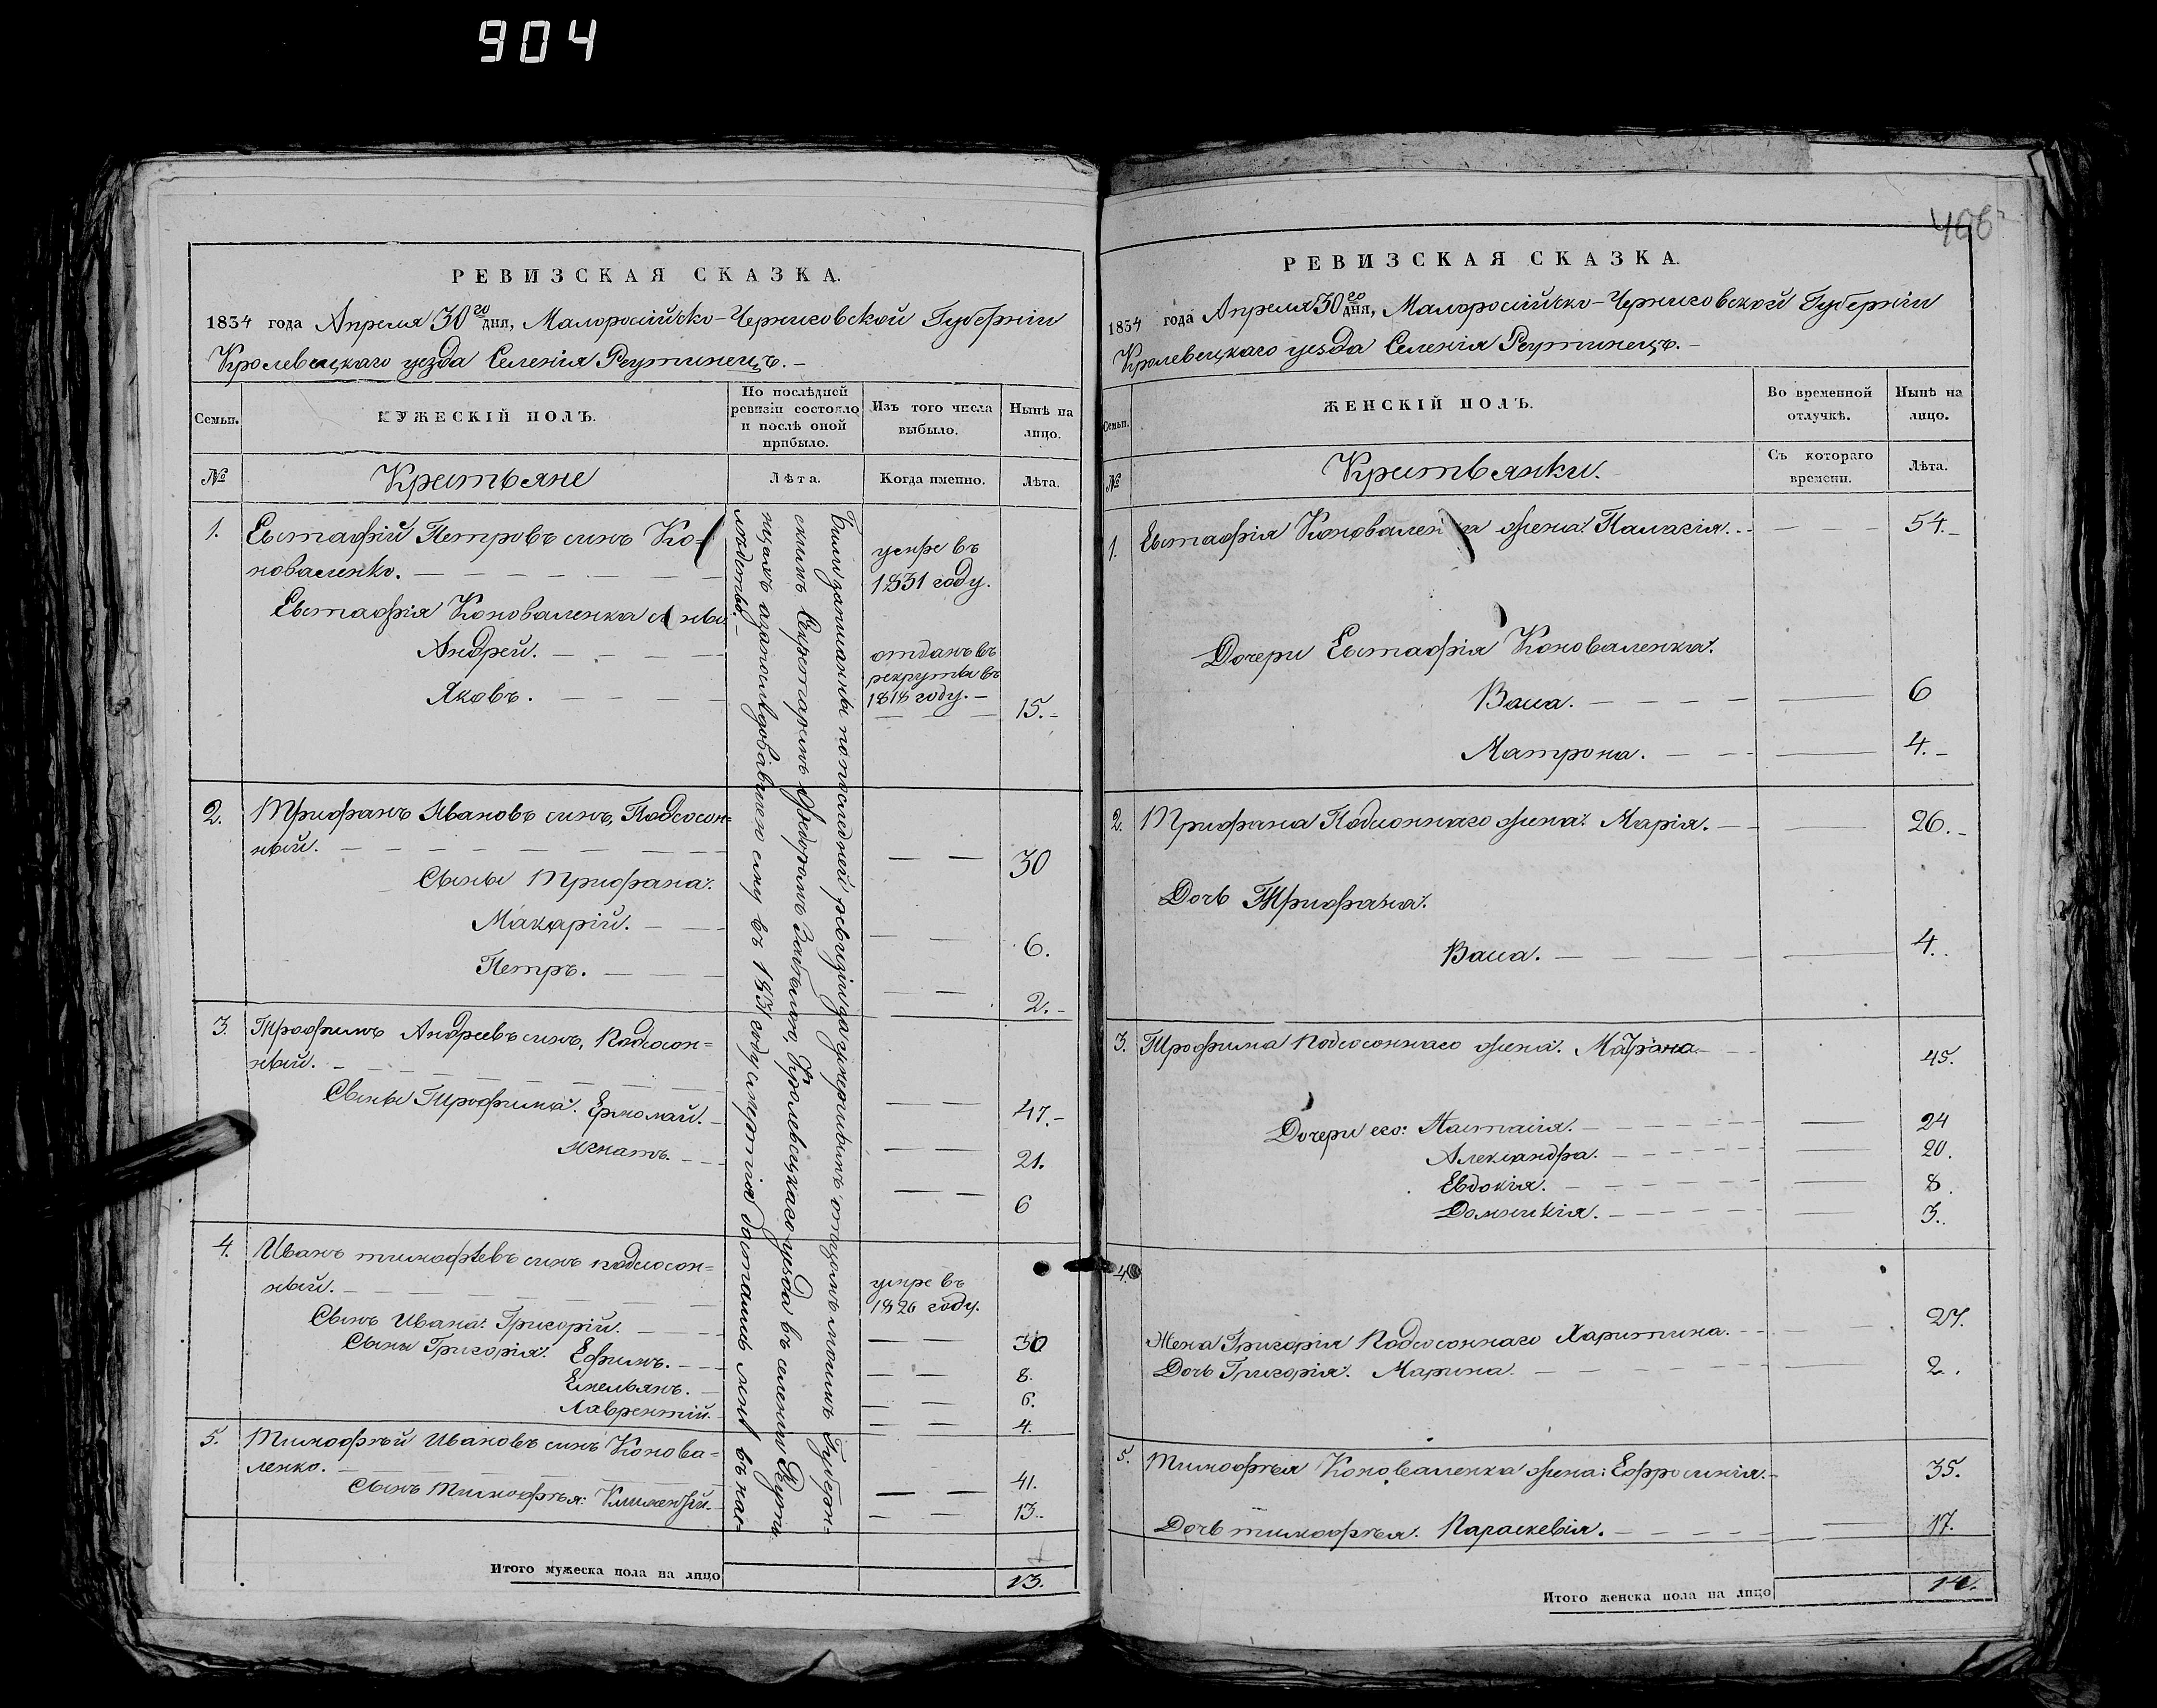 904
РЕВИЗСКАЯ СКАЗКА.
1834 года Апреля 30го дня, Малоросійско-Черниговской Губерніи
Кролевецкаго уезда Селенія Реутинецъ.
Семьи.
МУЖЕСКІЙ ПОЛЪ.
По послѣдней
ревизіи состояло
и послѣ оной
прибыло.
Изъ того числа
выбыло.
Нынѣ на
лицо.
№
Крестьяне
Лѣта.
Когда именно.
Лѣта.
1. Евстафій Петровъ синъ Ко=
новаленко.
умре въ
1831 году.
Евстафія Коноваленка
Андрей.
отданъ въ
рекруты въ
1818 году.
Яковъ. 15.
2. Трифанъ Ивановъ синъ, Подсосон=
ный. 30
Сыны Трифана:
Макарій. 6.
Петръ. 2.
3. Трофимъ Андреевъ синъ, Подсосон=
ный. 47.
Сыны Трофима: Ермолай. 21.
Игнатъ. 6
4. Иванъ тимофѣевъ синъ подсосон=
ный.
умре въ
1826 году.
Сынъ Ивана: Григорій. 30
Сыны Григорія: Ефимъ. 8.
Емельянъ. 6.
Лаврентій. 4.
5. Тимофѣй Ивановъ синъ Конова=
ленко. 41.
Сынъ Тимофѣя: Климентій. 13.
Были записанны по последней ревизіи за умершимъ отцомъ моимъ Губерн=
скимъ Секретаремъ Федоромъ Кролевецкаго уезда въ селеніи Реути=
нцахъ а за последовавшею ему въ 1831 году смертію достались мнѣ въ нас=
лѣдство.
Итого мужеска пола на лицо 13.
406
РЕВИЗСКАЯ СКАЗКА.
1834 года Апреля 30го дня, Малоросійско-Черниговской Губерніи
Кролевецкаго уезда Селенія Реутинецъ.
Семьи.
ЖЕНСКІЙ ПОЛЪ.
Во временной
отлучкѣ.
Нынѣ на
лицо.
№
Крестьянки.
Съ котораго
времени.
Лѣта.
1. Евстафія Коноваленка жена: Палагія. 54.
Дочери Евстафія Коноваленка:
Васа. 6
Матрона. 4.
2. Трифана Подсоннаго жена: Марія. 26.
Дочь Трифана:
Васа. 4.
3. Трофима Подсосоннаго жена: 45.
Дочери его: Настасія. 24
Александра. 20.
Евдокія. 8.
Домникія. 3.
4.
Жена Григорія Подсосоннаго Харитина. 27.
Дочь Григорія: Марина. 2.
5. Тимофѣя Коноваленка жена: Ефросинія. 35.
Дочь тимофѣя: Параскевія. 17.
Итого женска пола на лицо 14.